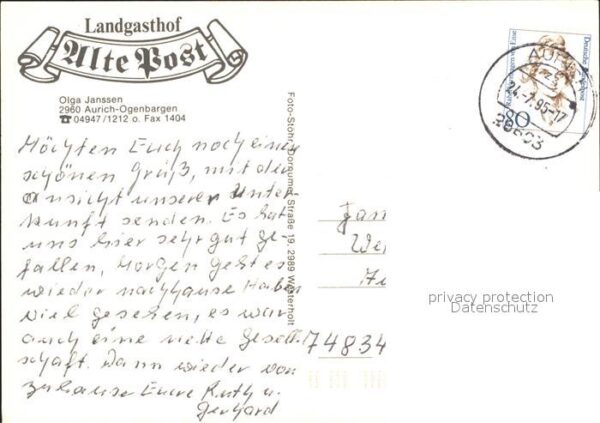 Landgasthof
Alte Post
Olga Janssen
2960 Aurich-Ogenbargen
☎ 04947/1212 o. Fax 1404
Möchten Euch noch einen
schönen Gruß, mit der
Ansicht unserer Unter-
kunft senden. Es hat
uns hier sehr gut ge-
fallen, Morgen geht es
wieder nachhause Haben
viel gesehen, es war
auch eine nette Gesell-
schaft. Dann wieder von
zuhause Eure Ruth u.
Gerhard
Foto-Stöhr, Dornumer Straße 19, 2989 Westerholt
Deutsche Bundespost
80
24.-7.95-17
26603
Fam
We
74834
privacy protection
Datenschutz